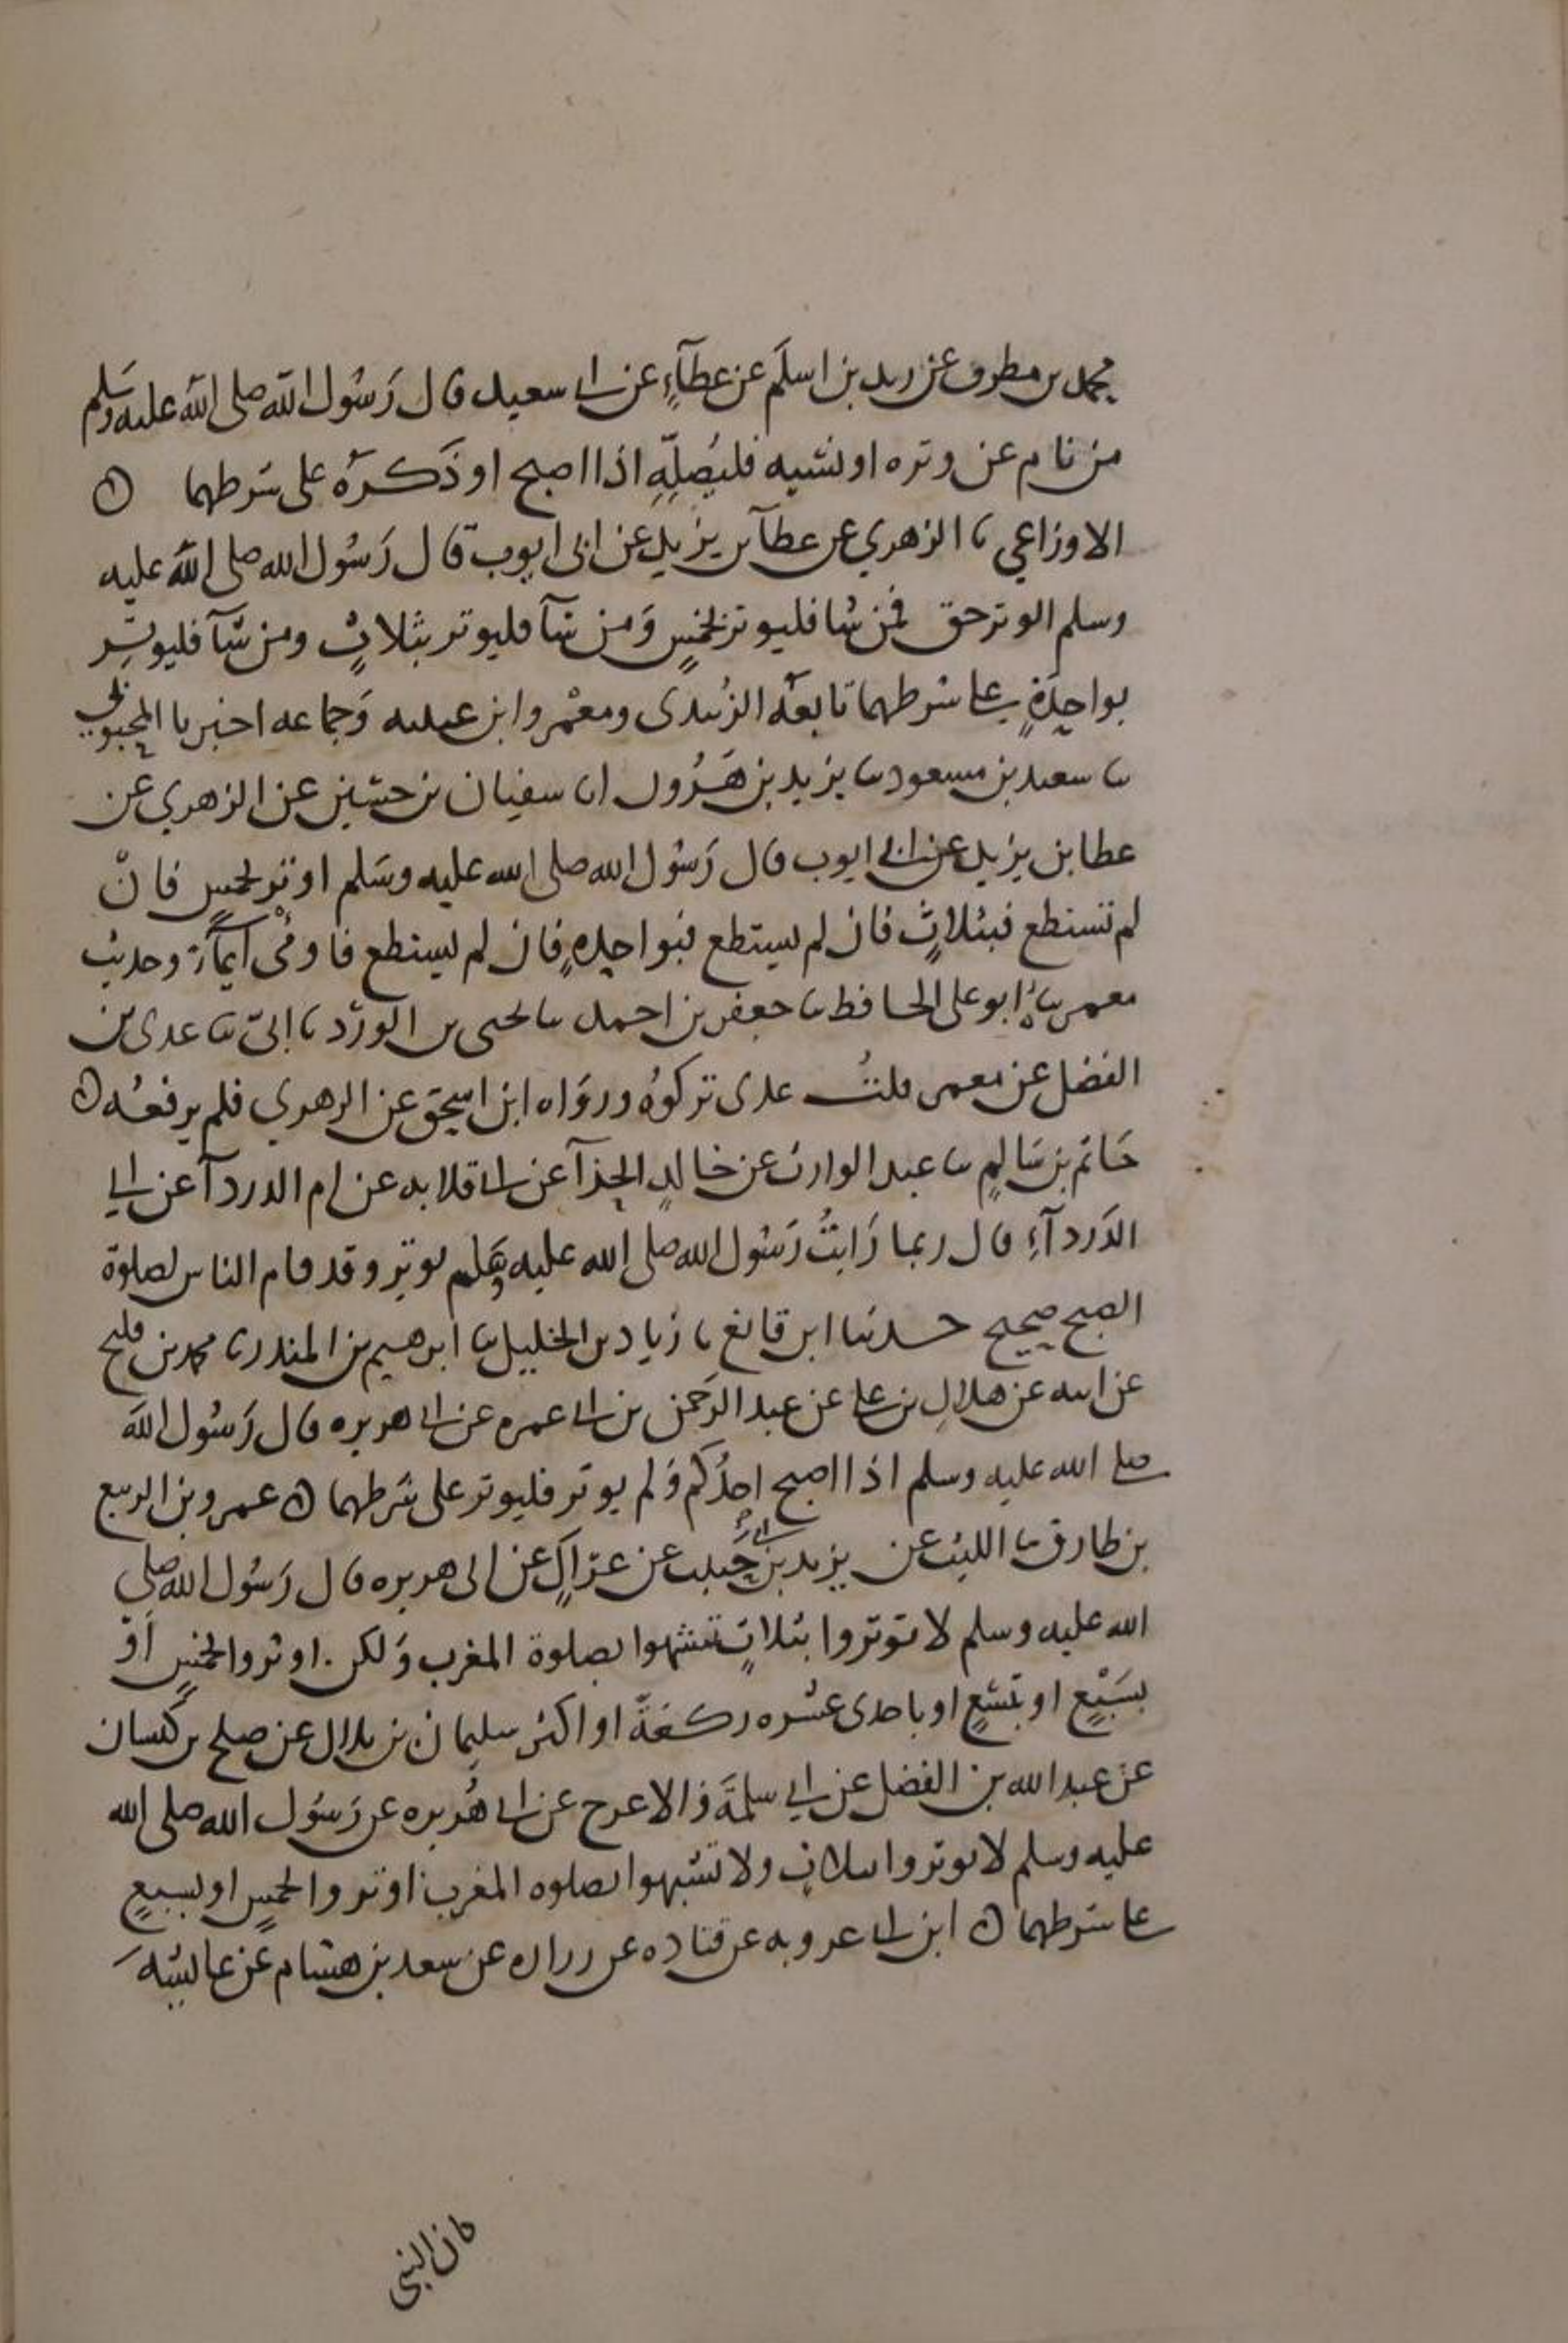 محمد بن مطرف عن زيد بن اسلَم عن عطآءٍ عن ابي سعيد قال رَسُول الله صلى الله عليه وسَلم
من نام عن وتره او نسيه فليُصلِّهِ اذا اصبح او ذَكرَهُ على شرطهما ۞
الاوزاعي ثنا الزهري عن عطآ بن يزيد عن ابى ايوب قال رَسُول الله صلى الله عليه
وسلم الوتر حق فمن شا فليوتر بخمسٍ وَمن شآ فليوتر بثلاثٍ ومن شآ فليوتِر
بواحِدَةٍ على شرطهما تابعَهُ الزُبيدى ومعْمر وابن عيينه وَجماعه اخبرنا المحبوبي
ثنا سعيد بن مسعود ثنا يزيد بن هَرُون انا سفيان بن حسَين عن الزهري عن
عطا بن يزيد عن ابى ايوب قال رَسُول الله صلى الله عليه وسَلم اوتر بخمسٍ فانْ
لم تستطع فبثلاثٍ فان لم يستطع فبواحِدهٍ فان لم يستطع فاومْى ايمآءً وحديث
معمر ثناهُ ابو على الحافظ ثنا جعفر بن احمد ثنا يحيى بن الورْد ثنا ابىّ ثنا عدى بن
الفضل عن معمر قلتُ عدى تركوُهُ وروَاه ابن اسحق عن الزهري فلم يرفعُه ۞
حَاتم بن سَالمٍ ثنا عبد الوارث عن خالدٍ الحذآ عن ابي قلابه عن ام الدردآ عن ابي
الدَردآءِ قال ربما رَايتُ رَسُول الله صلى الله عليه وسَلم يوتر وقد قام الناس لصلوة
الصبح صحيح حدثنا ابن قانع ثنا زياد بن الخليل ثنا ابرهيم بن المنذر ثنا محمد بن فليح
عن ابيه عن هلالِ بن على عن عبد الرَحمن بن ابي عمره عن ابي هريره قال رَسُول الله
صلى الله عليه وسلم اذا اصبح احدُكم وَلم يوتر فليوتر على شرطهما ۞ عمرو بن الربيع
بن طارق ثنا الليث عن يزيد بن ابي حَبيب عن عرَاكٍ عن ابى هريره قال رَسُول الله صلى
الله عليه وسلم لا توتروا بثلاثٍ تشبهوا بصلوة المغرب وَلكن اوتروا بخمسٍ اَوْ
بسَبْعٍ او بتسْعٍ او باحدى عشره ركعةً او اكثر سليمان بن بلال عن صلح بن كيسان
عن عبد الله بن الفضل عن ابي سلمَة وَالاعرج عن ابي هُريره عن رَسُول الله صلى الله
عليه وسلم لا توتروا بثلاثٍ ولا تشبهوا بصلوه المغرب اوتروا بخمسٍ او بسبعٍ
على شرطهما ۞ ابن ابي عروبه عن قتاده عن زراره عن سعد بن هشام عن عائشه
كان النبى